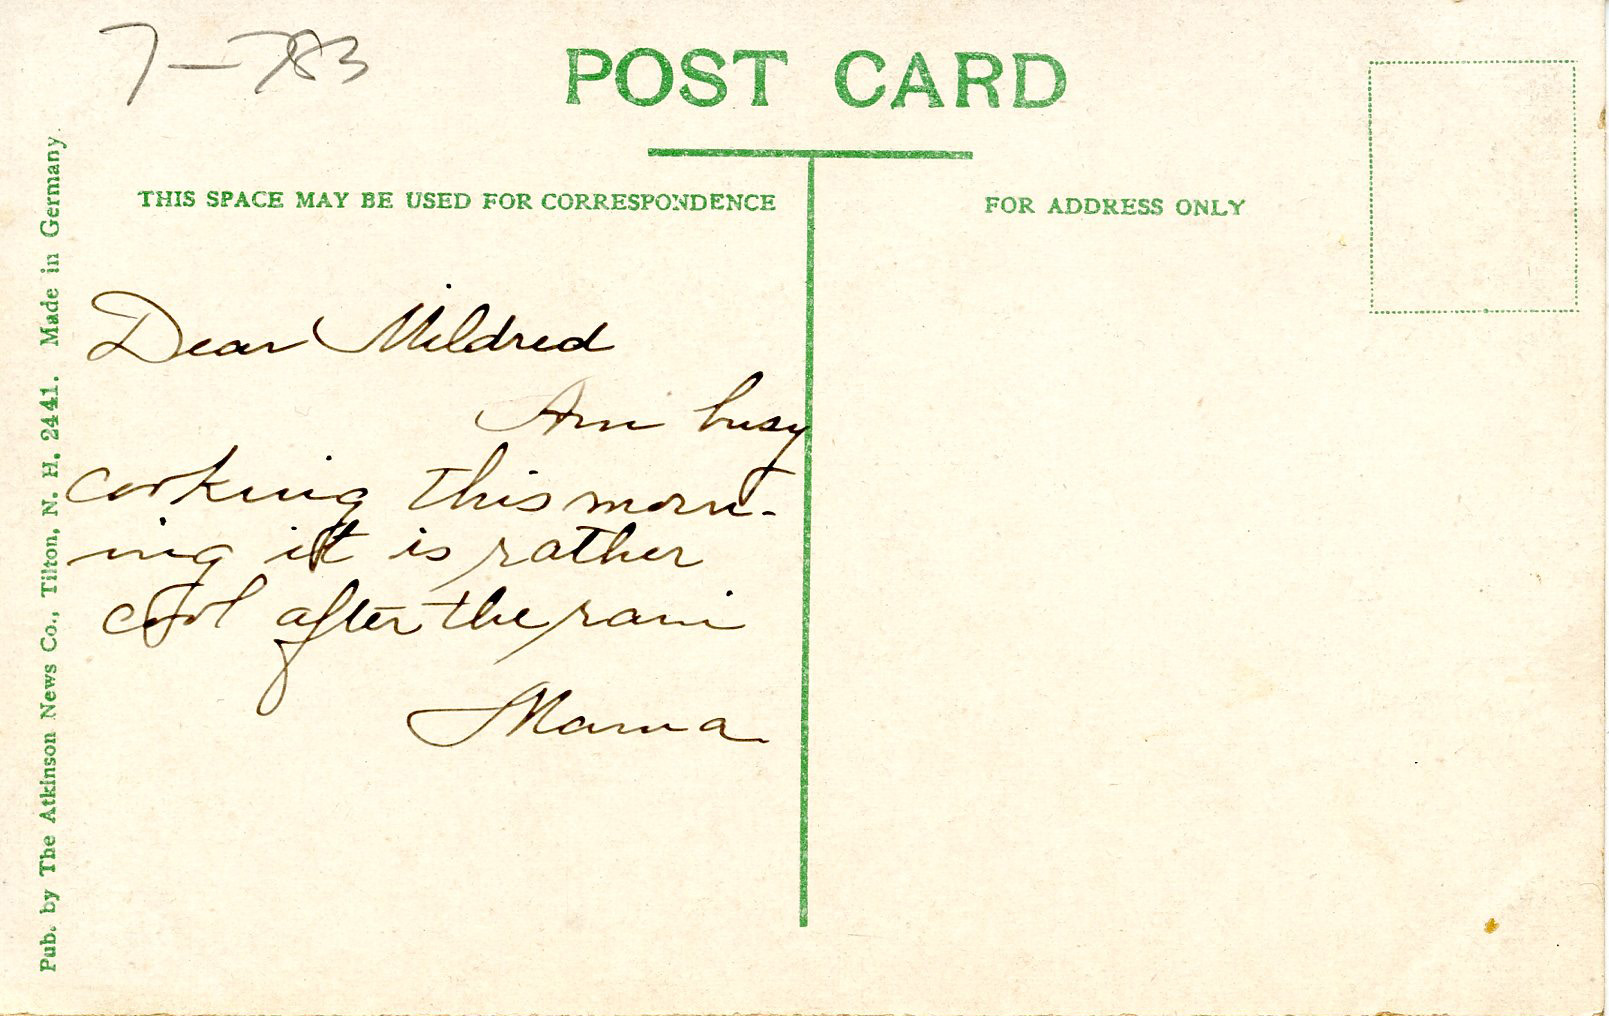 7-783
POST CARD
THIS SPACE MAY BE USED FOR CORRESPONDENCE
FOR ADDRESS ONLY
Pub. by The Atkinson News Co., Tilton, N. H. 2441. Made in Germany.
Dear Mildred
Am busy
cooking this morn-
ing it is rather
cool after the rain
Mama